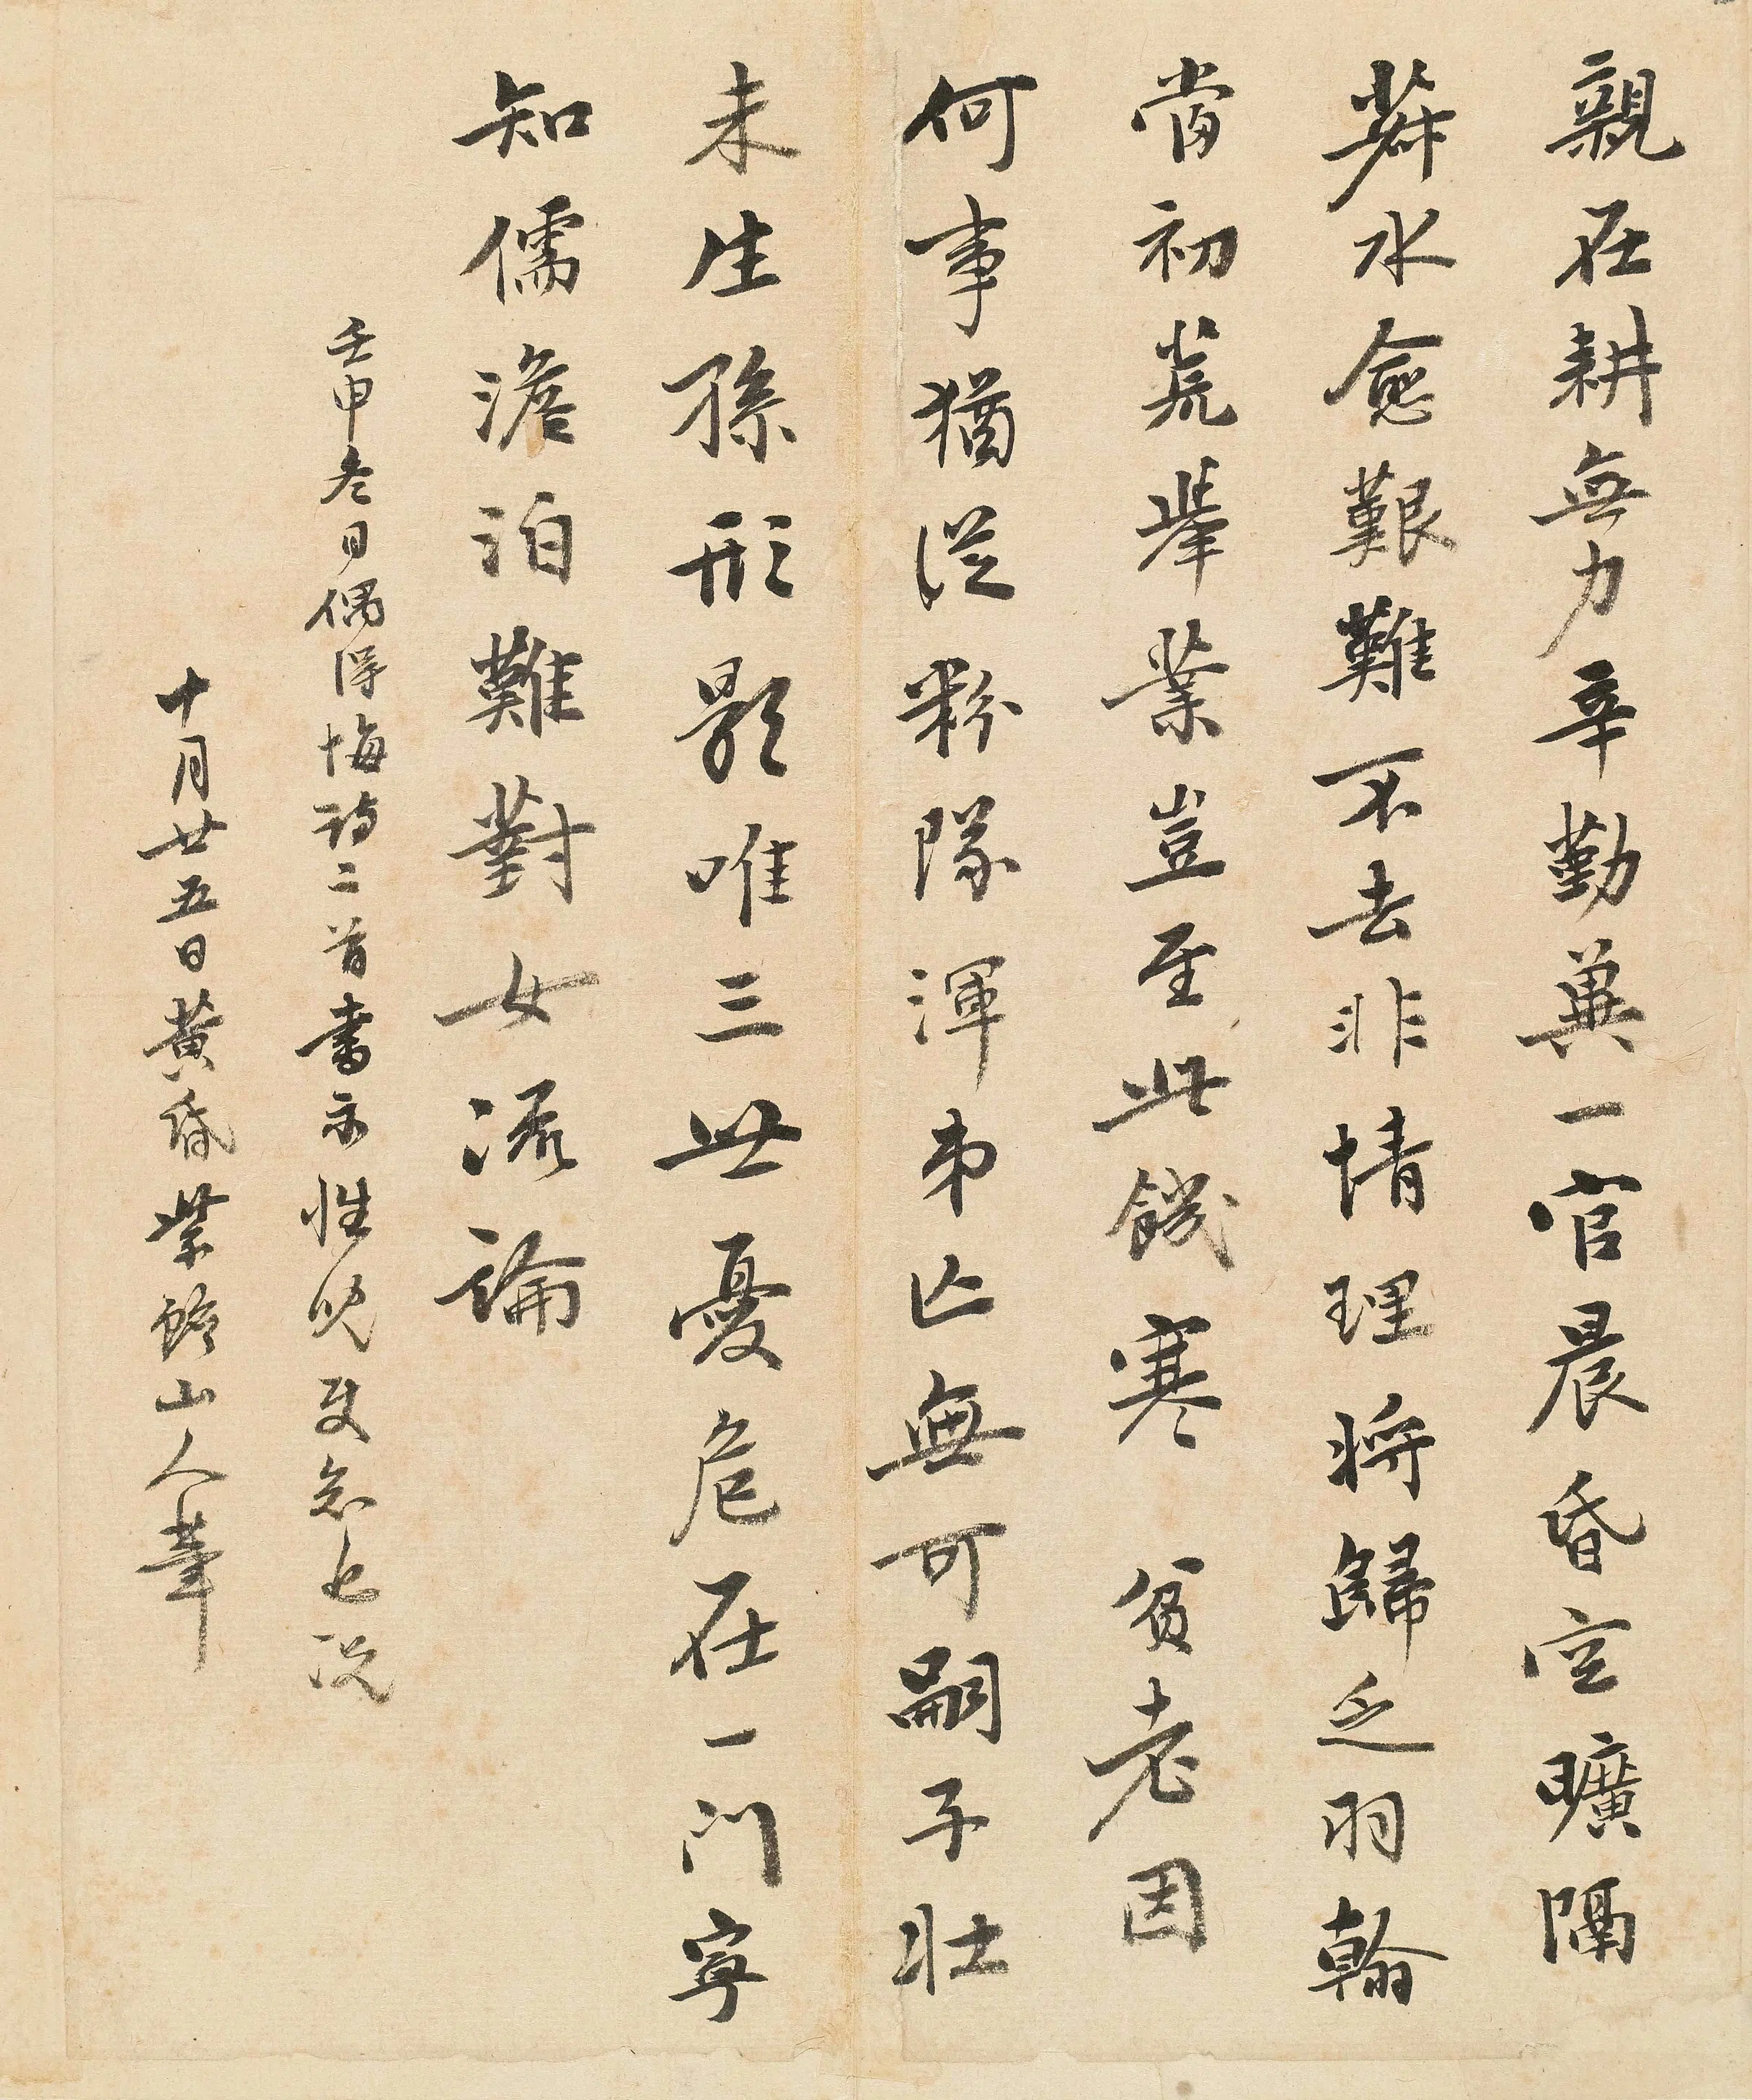 親在耕無力辛勤兼一官晨昏空曠隔
薪水愈艱難不去非情理將歸乏羽翰
當初荒舉業豈至此饑寒 貧老因
何事猶從粉隊渾弟亡無可嗣子壯
未生孫形影唯三世憂危在一門寧
知儒澹泊難對女流論
壬申冬日偶得悔詩二首書示性兒
十月廿五日黃昏紫 山人